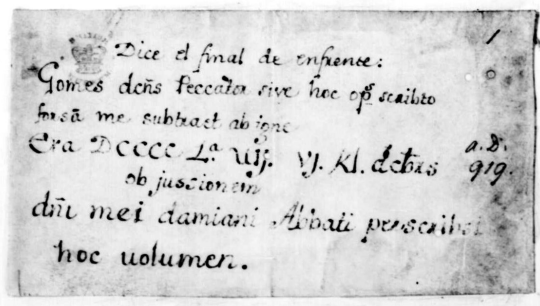 1
Dice el final de enfrente:
Gomes dcñs Peccator sive hoc op̃ scribto
forsã me subtraet ab igne
Era DCCCC L.ª VIJ. VJ. Kl. dcb̃rs a. D. 919.
ob jussionem
dñi mei damiani Abbati perscribsi
hoc uolumen.